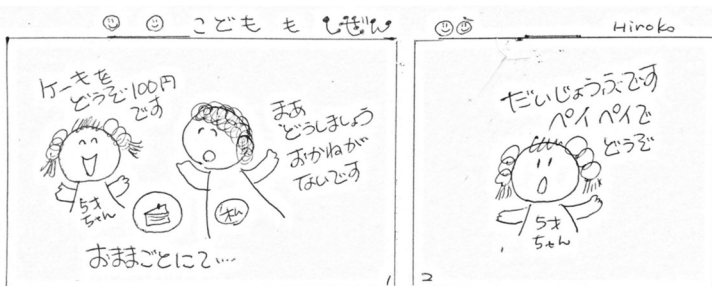 こどももしぜん
Hiroko
ケーキを
どうぞ100円
です
まあ
どうしましょう
おかねが
ないです
5才
ちゃん
おままごとにて....
1
だいじょうぶです
ペイペイで
どうぞ
5才
ちゃん
2